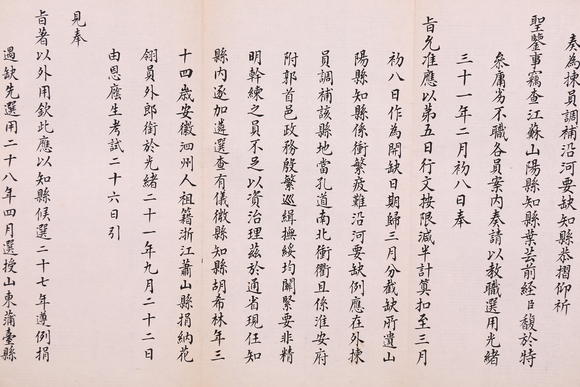 奏為揀員調補沿河要缺知縣恭摺仰祈
聖鑒事竊查江蘇山陽縣知縣葉芸前經臣馥於特
叅庸劣不職各員案內奏請以教職選用光緒
三十一年二月初八日奉
旨允准應以第五日行文按限減半計算扣至三月
初八日作為開缺日期歸三月分截缺所遺山
陽縣知縣係衝繁疲難沿河要缺例應在外揀
員調補該縣地當孔道南北衝衢且係淮安府
附郭首邑政務殷繁巡緝撫綏均關緊要非精
明幹練之員不足以資治理茲於通省現任知
縣內逐加遴選查有儀徵縣知縣胡希林年三
十四歲安徽泗州人祖籍浙江蕭山縣捐納花
翎員外郎銜於光緒二十一年九月二十二日
由恩廕生考試二十六日引
見奉
旨著以外用欽此應以知縣候選二十七年遵例捐
過缺先選用二十八年四月選授山東蒲臺縣